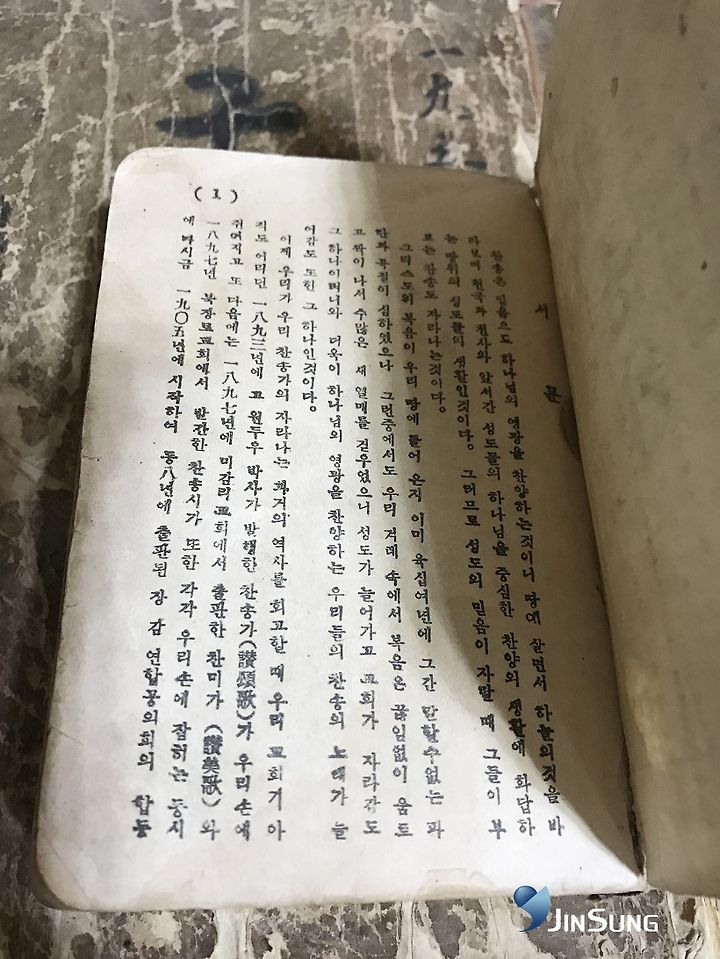 서문
찬송은 믿음으로 하나님의 영광을 찬양하는것이니 땅에 살면서 하늘의것을 바
라보며 천국과 천사와 앞서간 성도들의 하나님을 중심한 찬양의 생활에 화답하
는 땅위의 성도들의 생활인것이다。 그러므로 성도의 믿음이 자랄 때 그들이 부
르는 찬송도 자라나는것이다。
그리스도의 복음이 우리 땅에 들어 온지 이미 육십여년에 그간 말할수없는 파
란과 곡절이 심하였으나 그런중에서도 우리 겨레 속에서 복음은 끊임없이 움트
고 싹이 나서 수많은 새 열매를 걷우었으니 성도가 늘어가고 교회가 자라감도
그 하나이려니와 더욱이 하나님의 영광을 찬양하는 우리들의 찬송의 노래가 늘
어감도 또한 그 하나인것이다。
이제 우리가 우리 찬송가의 자라나는 과거의 역사를 회고할 때 우리 교회가 아
직도 어리던 一八九三년에 고 원두우 박사가 발행한 찬송가(讃頌歌)가 우리 손에
쥐여지고 또 다음에는 一八九七년에 미감리교회에서 출판한 찬미가(讃美歌)와
一八九七년 북장로교회에서 발간한 찬송시가 또한 각각 우리손에 잡히는 동시
에 다시금 一九〇五년에 시작하여 동八년에 출판된 장 감 연합공의회의 합동
(1)
一九五
JINSUNG